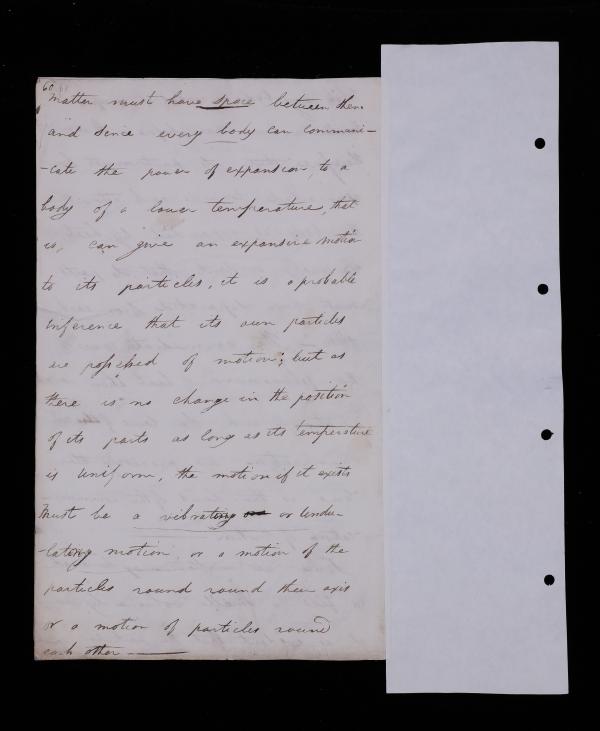 60
Matter must have space between them
and sence every body can communi-
-cate the power of expansion, to a
body of a lower temperature, that
is, can give an expansive motion
to its particles, it is a probable
inference that its own particles
are possessed of motion; but as
there is no change in the position
of its parts as long as its temperature
is uniform, the motion if it exists
must be a vibrating or undu-
-lating motion, or a motion of the
particles round round their axis
or a motion of particles round
each other —